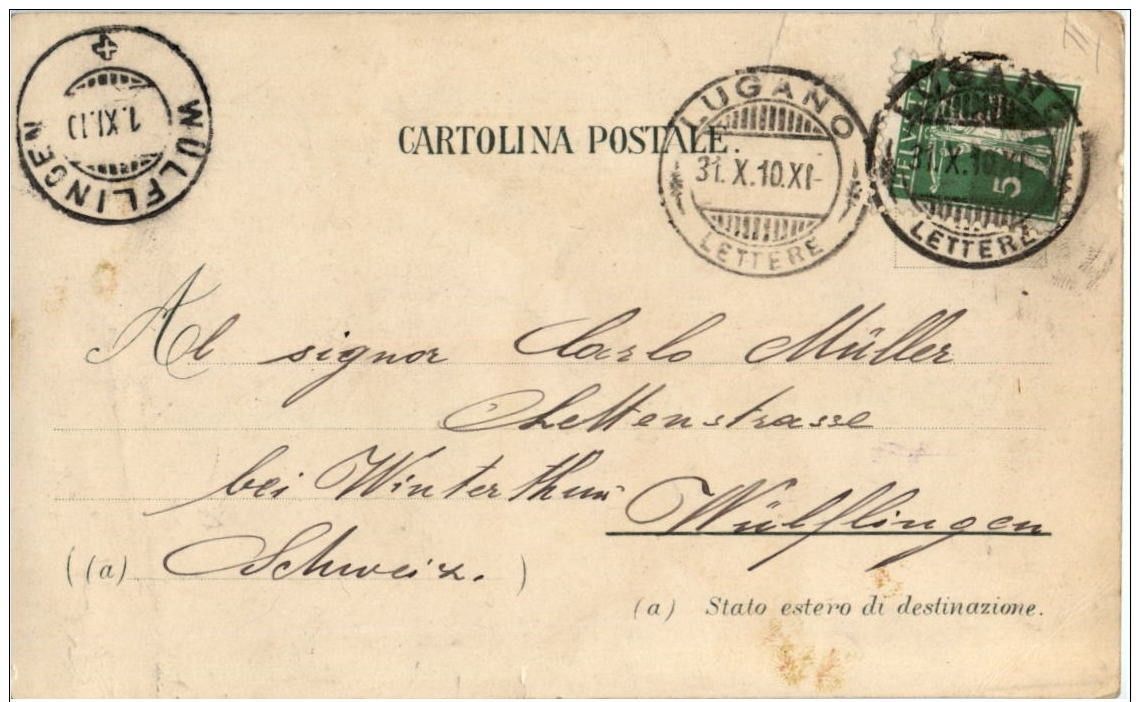 WÜLFLINGEN
1.XI.10
CARTOLINA POSTALE.
LUGANO
31.X.10.XI-
LETTERE
HELVETIA
5
LUGANO
31.X.10.XI
LETTERE
Al signor Carlo Müller
Lettenstrasse
bei Winterthur
Wülflingen
((a) Schweiz. )
(a) Stato estero di destinazione.